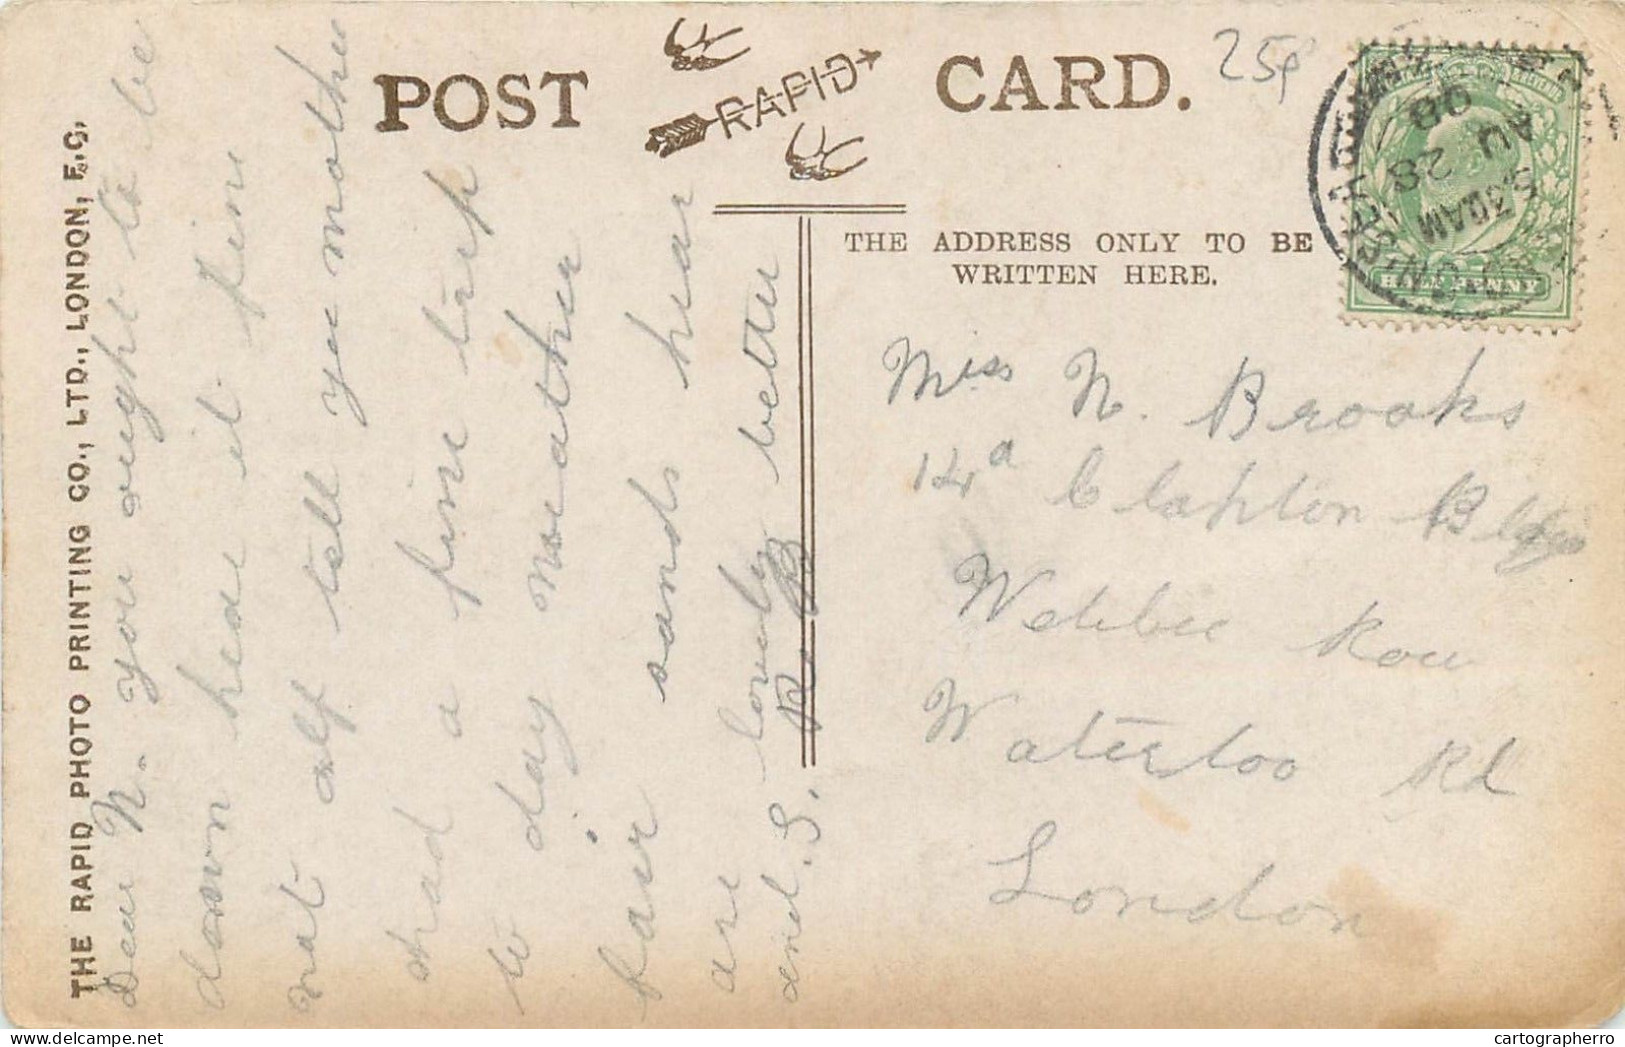 POST CARD.
RAPID
25p
THE ADDRESS ONLY TO BE
WRITTEN HERE.
HALF PENNY
8.30AM
AU 28
Miss N. Brooks
14a Clapton Bldgs
Webber Row
Waterloo Rd
London
THE RAPID PHOTO PRINTING CO., LTD., LONDON, E.C.
Dear N. you ought to be
down here it fine
not alf tell you mother
had a fine trip
to day weather
fair sands hear
are lovely better
and S. R. B
cartographerro